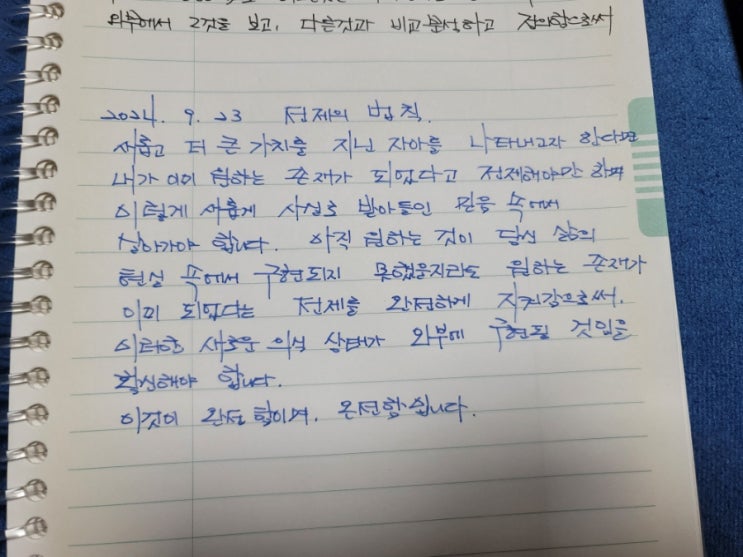 외부에서 그것을 보고, 다른것과 비교분석하고 정의함으로써
2024. 9. 23 전제의 법칙.
새롭고 더 큰 가치를 지닌 자아를 나타내고자 한다면
내가 이미 원하는 존재가 되었다고 전제해야만 하며
이렇게 새롭게 사실로 받아들인 믿음 속에서
살아가야 합니다. 아직 원하는 것이 당신 삶의
현실 속에서 구현되지 못했을지라도 원하는 존재가
이미 되었다는 전제를 완전하게 지켜감으로써,
이러한 새로운 의식 상태가 외부에 구현될 것임을
확신해야 합니다.
이것이 완전함이며, 온전함입니다.